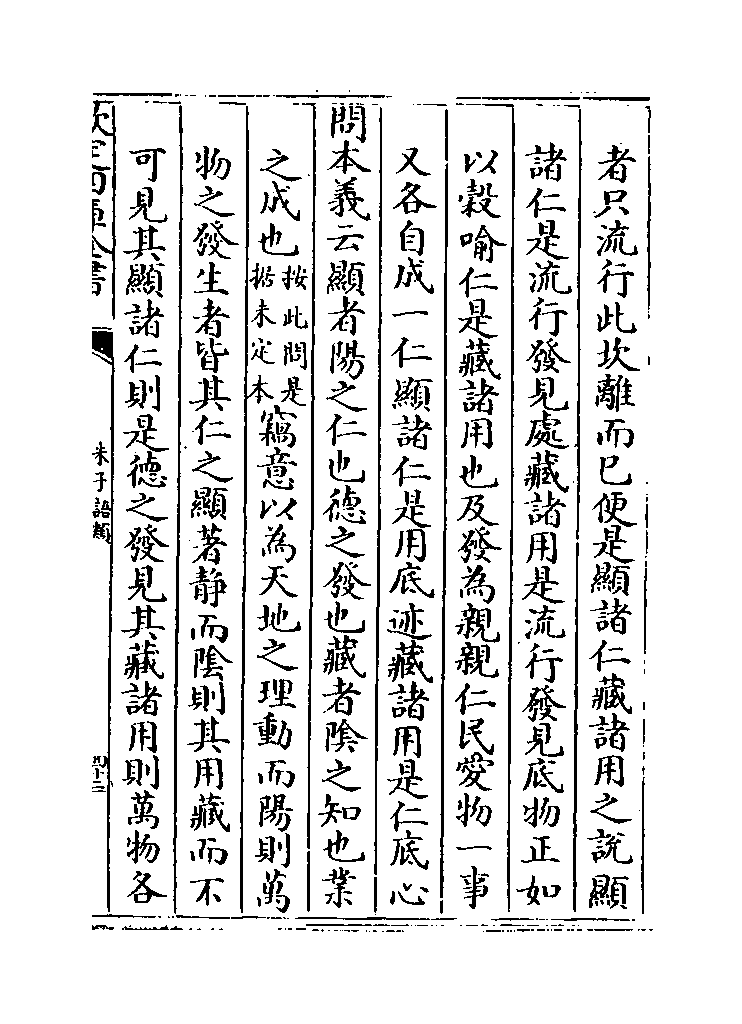 者只流行此坎離而已便是顯諸仁藏諸用之說顯
諸仁是流行發見處藏諸用是流行發見底物正如
以穀喻仁是藏諸用也及發為親親仁民愛物一事
又各自成一仁顯諸仁是用底迹藏諸用是仁底心
問本義云顯者陽之仁也德之發也藏者陰之知也業
之成也按此問是據未定本竊意以為天地之理動而陽則萬
物之發生者皆其仁之顯著靜而陰則其用藏而不
可見其顯諸仁則是德之發見其藏諸用則萬物各
欽定四庫全書
朱子語類
四十二